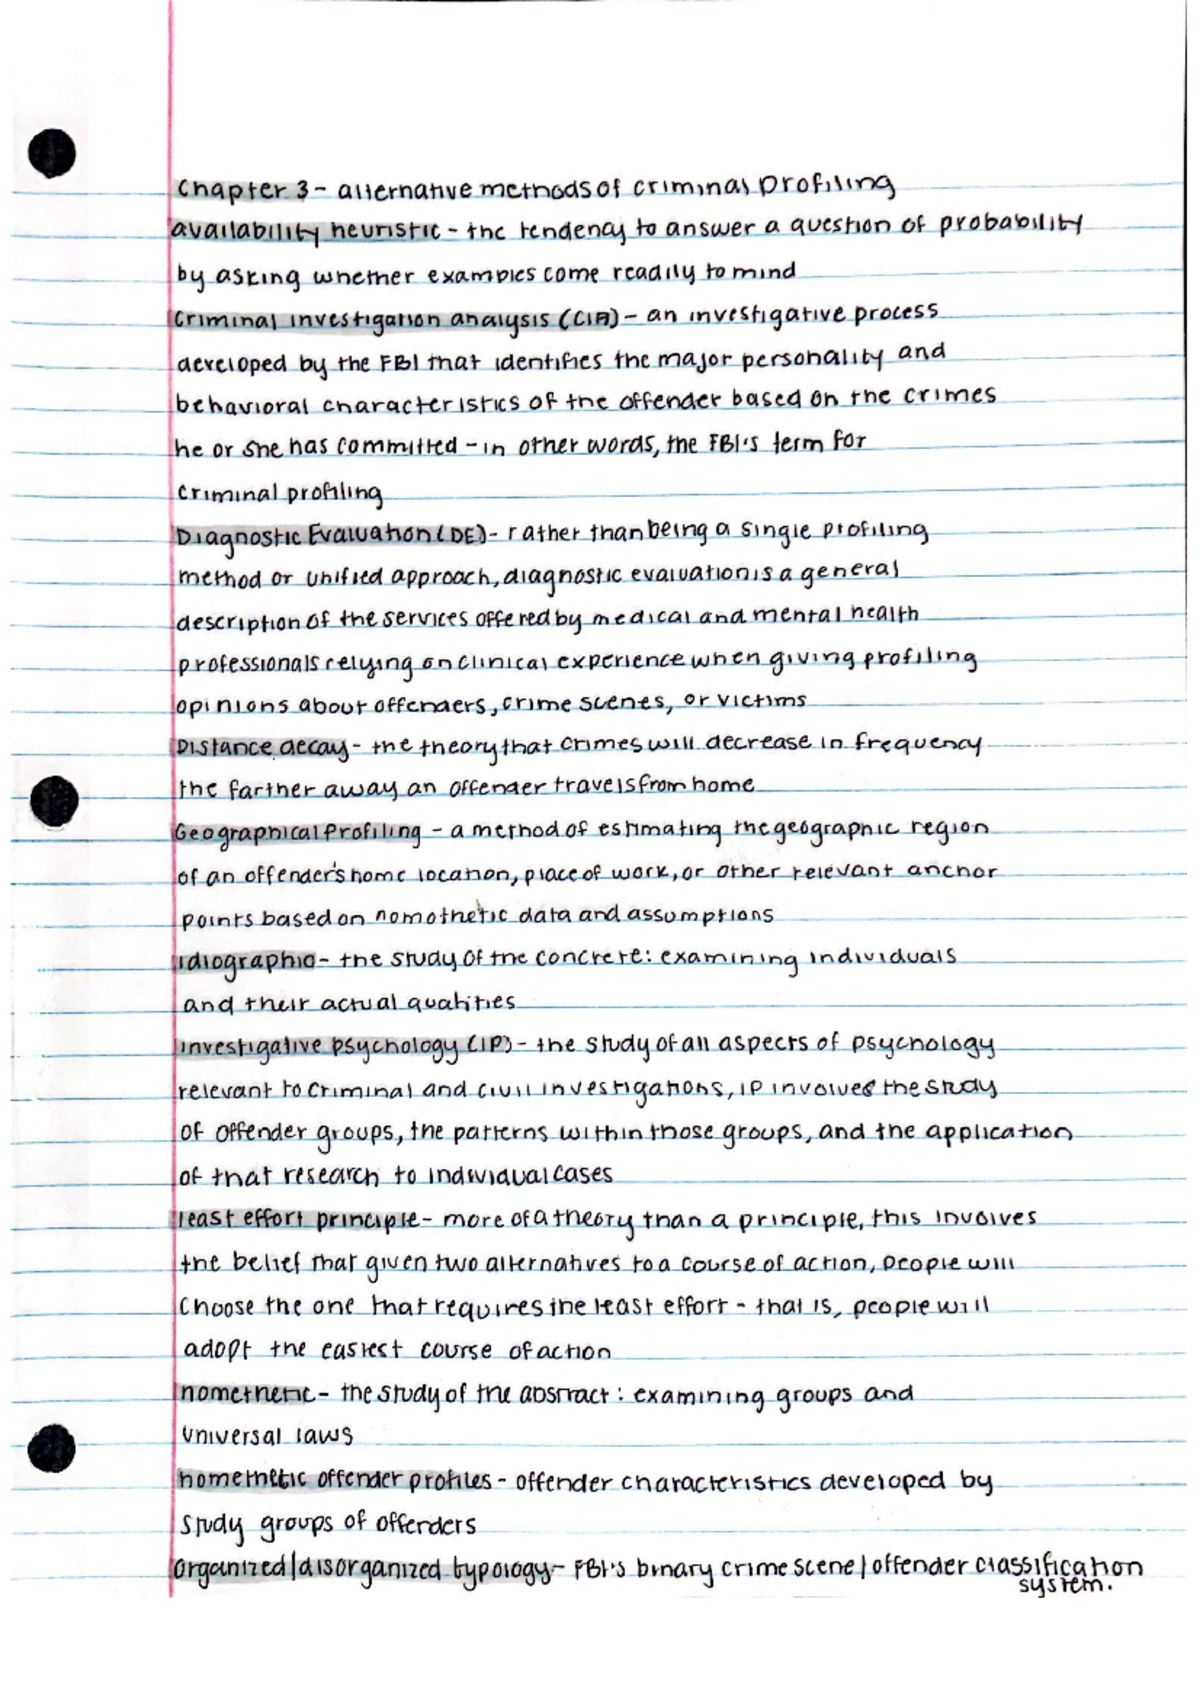 Chapter 3 - alternative methods of criminal profiling
availability heuristic - the tendency to answer a question of probability
by asking whether examples come readily to mind
Criminal investigation analysis (CIA) - an investigative process
developed by the FBI that identifies the major personality and
behavioral characteristics of the offender based on the crimes
he or she has committed - in other words, the FBI's term for
criminal profiling
Diagnostic Evaluation (DE) - rather than being a single profiling
method or unified approach, diagnostic evaluation is a general
description of the services offered by medical and mental health
professionals relying on clinical experience when giving profiling
opinions about offenders, crime scenes, or victims
Distance decay - the theory that crimes will decrease in frequency
the farther away an offender travels from home
Geographical Profiling - a method of estimating the geographic region
of an offender's home location, place of work, or other relevant anchor
points based on nomothetic data and assumptions
idiographic - the study of the concrete: examining individuals
and their actual qualities
investigative psychology (IP) - the study of all aspects of psychology
relevant to criminal and civil investigations, IP involves the study
of offender groups, the patterns within those groups, and the application
of that research to individual cases
least effort principle - more of a theory than a principle, this involves
the belief that given two alternatives to a course of action, people will
choose the one that requires the least effort - that is, people will
adopt the easiest course of action
nomethetic - the study of the abstract: examining groups and
universal laws
nomethetic offender profiles - offender characteristics developed by
study groups of offenders
Organized/disorganized typology - FBI's binary crime scene/offender classification
system.